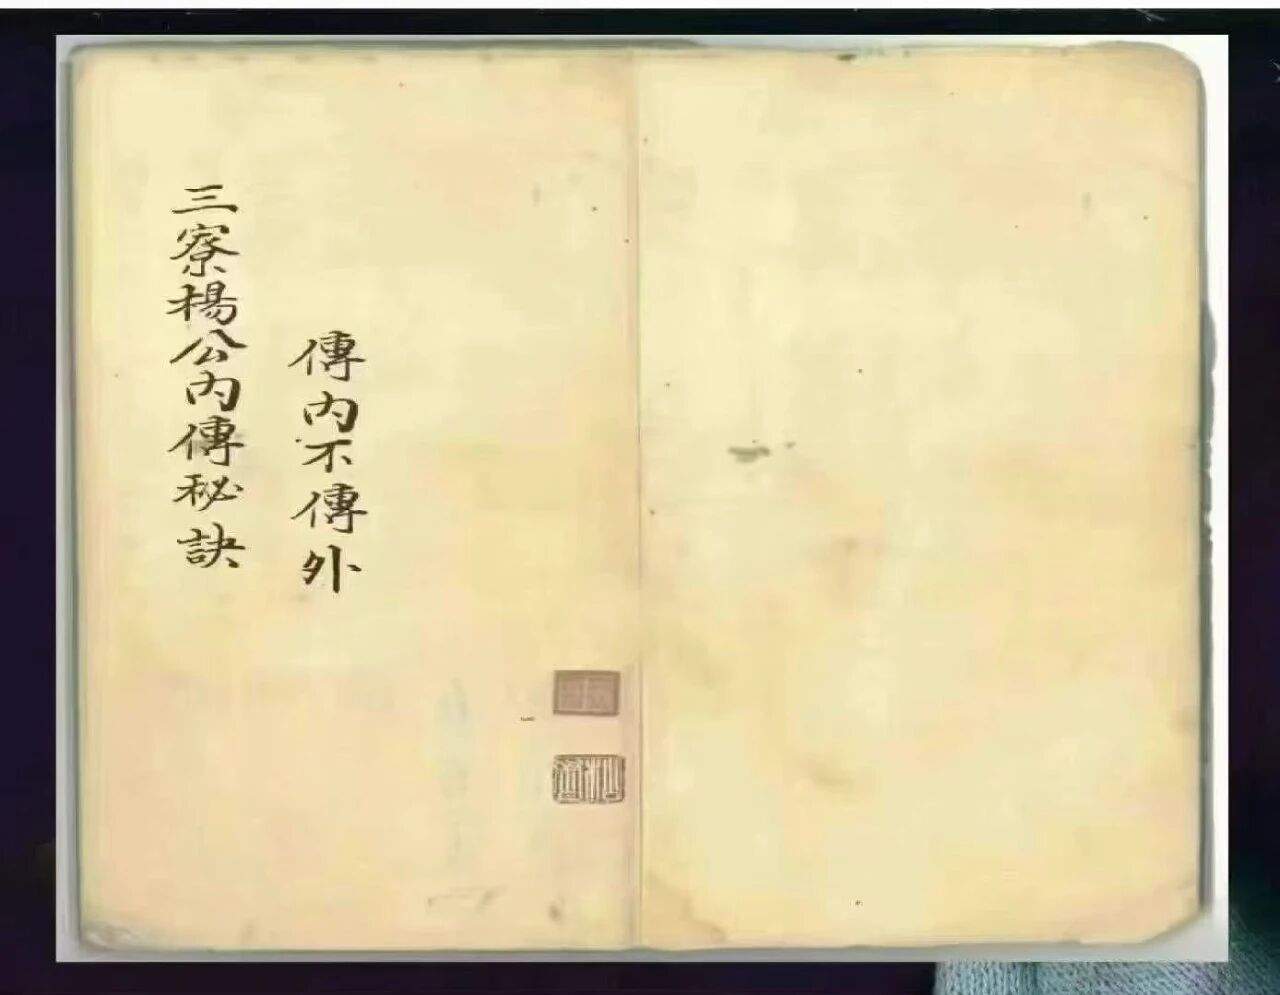 傳内不傳外
三寮楊公内傳秘訣